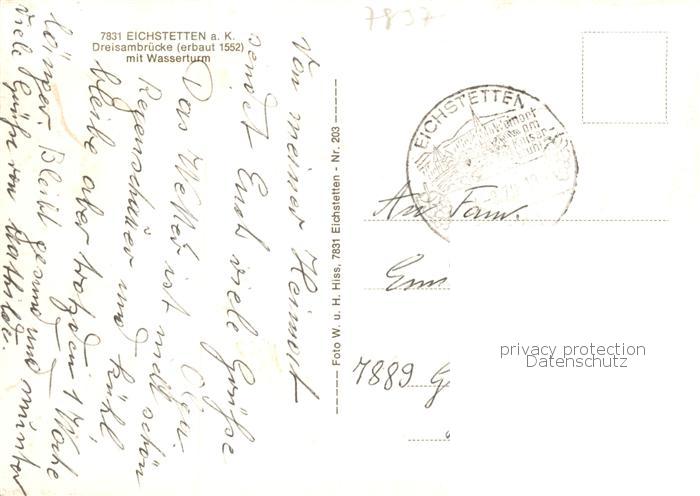 7837
7831 EICHSTETTEN a. K.
Dreisambrücke (erbaut 1552)
mit Wasserturm
Von meiner Heimat
sendet Euch viele Grüße
Olga.
Das Wetter ist nicht schön
Regenschauer und kühl
bleibe aber trotzdem 1 Woche
länger. Bleibt gesund und munter
viele Grüße von Mathilde.
Foto W. u. H. Hiss, 7831 Eichstetten - Nr. 203
EICHSTETTEN
am
Kaiser
An Fam.
7889 G
privacy protection
Datenschutz